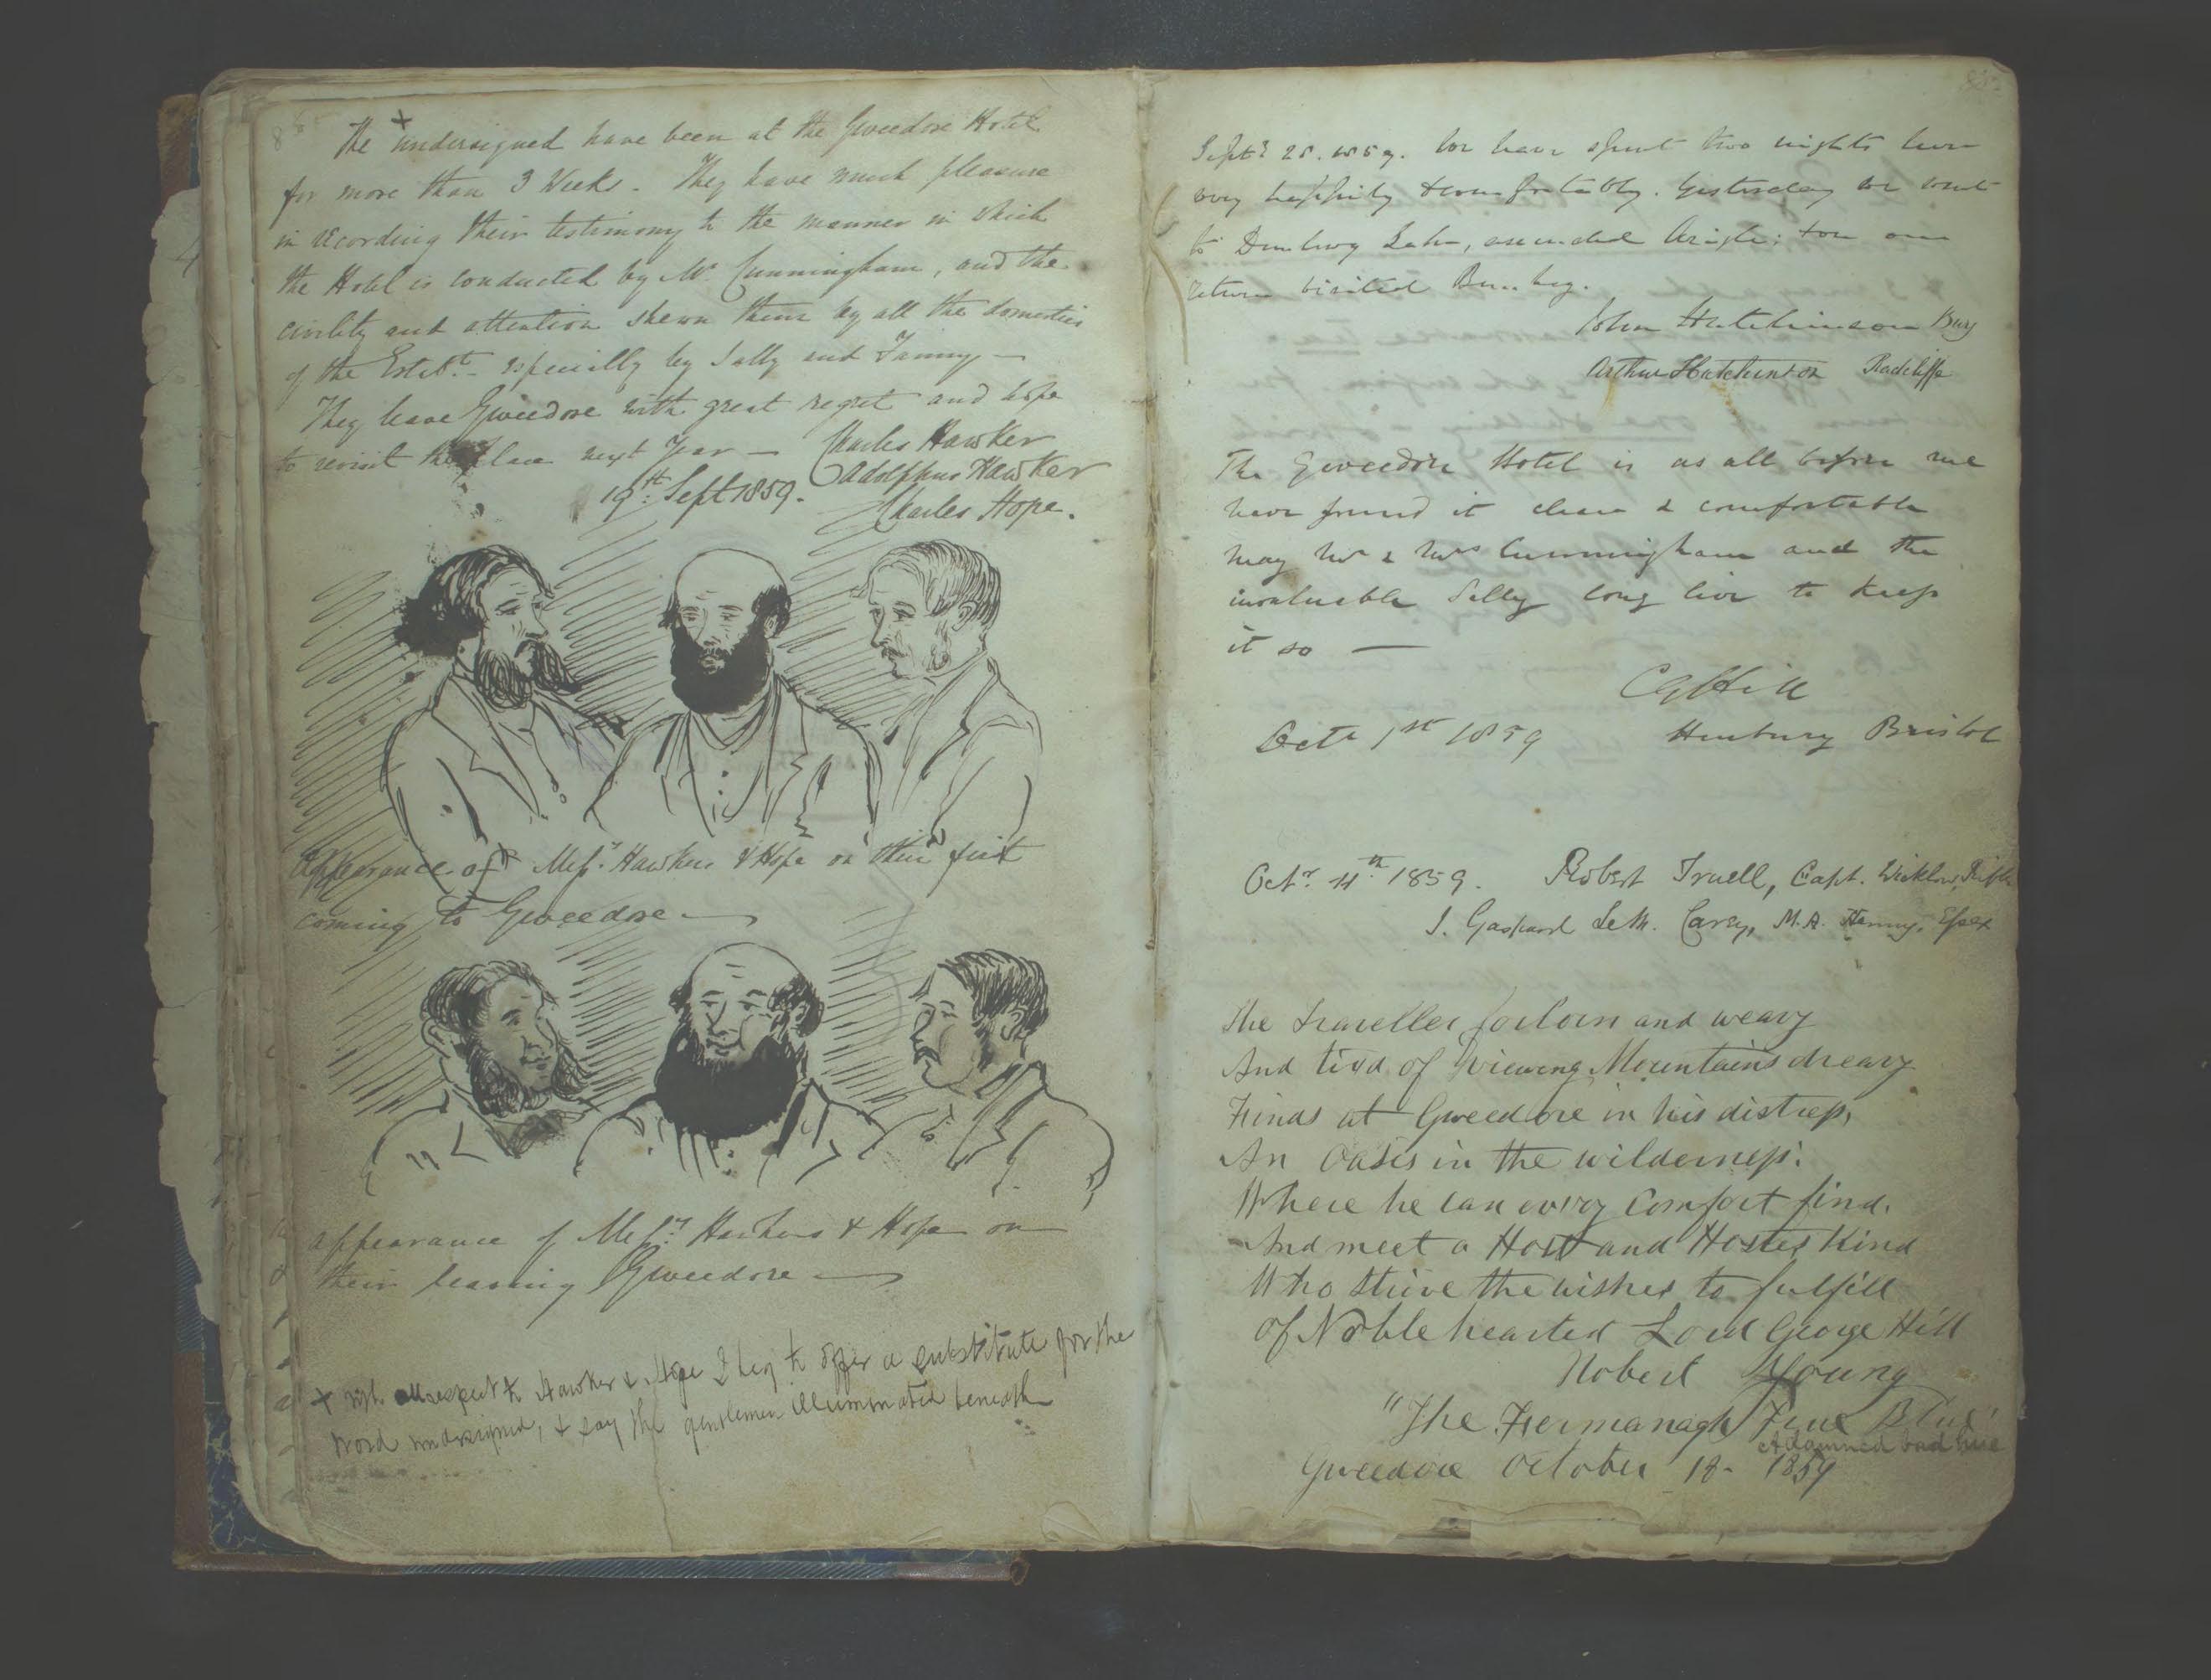 The + undersigned have been at the Gweedore Hotel
for more than 3 Weeks. They have much pleasure
in recording their testimony to the manner in which
the Hotel is conducted by Mr. Cunningham, and the
civility and attention shewn them by all the domestics
of the Estabt. especially by Sally and Fanny —
They leave Gweedore with great regret and hope
to revisit the place next Year — Charles Hawker
Adolphus Hawker
19th. Sept 1859.
Charles Hope.
appearance of Messrs. Hawkers & Hope on their first
coming to Gweedore —
appearance of Messrs. Hawkers & Hope on
their leaving Gweedore —
+ with all respect to Hawker & Hope I beg to offer a substitute for the
word undersigned, & say the gentlemen illuminated beneath
Septr 28. 1859. We have spent two nights here
very happily & comfortably. Yesterday we went
to Dunlewy Lake, ascended Arigle; & on our
return visited Bunbeg.
John Hutchinson Bury
Arthur Hutchinson Radcliffe
The Gweedore Hotel is as all before me
have found it clean & comfortable
may Mr & Mrs Cunningham and the
invaluable Sally long live to keep
it so —
CGHill
Octr 1st 1859 Henbury Bristol
Octr. 11th 1859. Robert Truell, Capt. Wicklow Rifles
J. Gaspard Le M. Carey, M.A. Essex
The Traveller forlorn and weary
And tired of viewing Mountains dreary
Finds at Gweedore in his distress,
An Oasis in the wilderness.
Where he can every Comfort find.
And meet a Host and Hostess Kind
Who strive the wishes to fulfill
Of Noble hearted Lord George Hill
Robert Young
"The Fermanagh True Blue"
A damned bad hue
Gweedore October 18- 1859